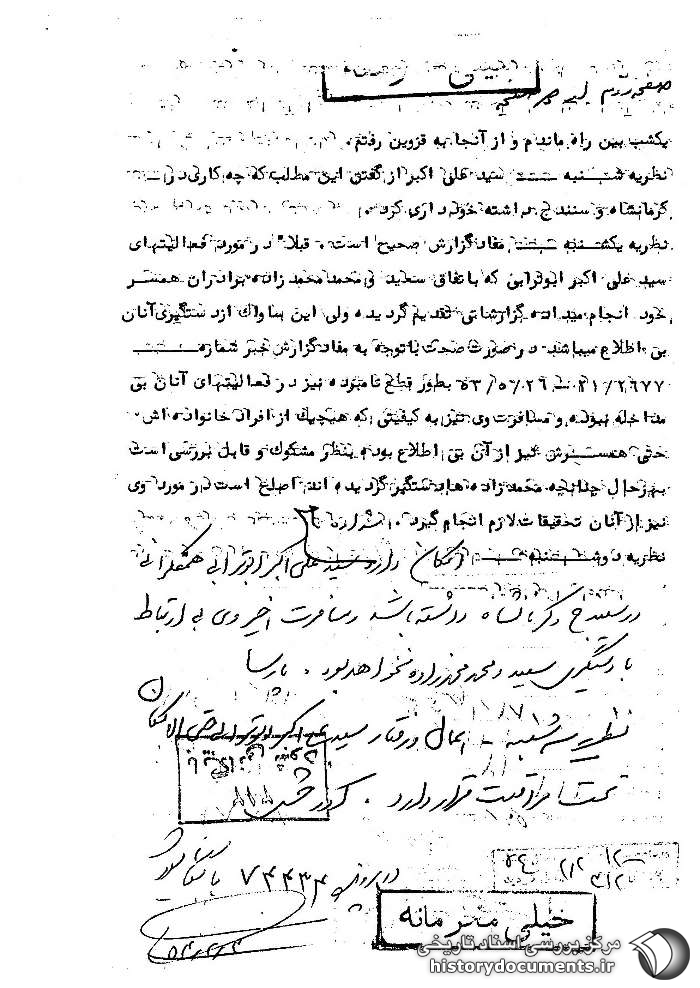 صفحه دوم
یکشب بین راه ماندم و از آنجا به قزوین رفتم.
نظریه شنبه سید علی اکبر از گفتن این مطلب که چه کاری در
کرمانشاه و سنندج داشته خود داری کرد.
نظریه یکشنبه مفاد گزارش صحیح است. قبلا در مورد فعالیتهای
سید علی اکبر ابوترابی که باتفاق سعید و محمد محمد زاده برادران همسر
خود انجام میداده گزارشاتی تقدیم گردیده ولی این ساواک از دستگیری آنان
بی اطلاع میباشد در صورت صحت با توجه به مفاد گزارش خبر شماره
۲۱/۲۶۷۷ - ۵۳/۵/۲۶ بطور قطع نامبرده نیز در فعالیتهای آنان بی
مداخله نبوده و مسافرت وی نیز به کیفیتی که هیچیک از افراد خانواده اش
حتی همسرش نیز از آن بی اطلاع بوده بنظر مشکوک و قابل بررسی است
بهرحال چنانچه محمد زاده ها دستگیر گردیده اند اصلح است در مورد وی
نیز از آنان تحقیقات لازم انجام گیرد.
نظریه دوشنبه امکان دارد سید علی اکبر ابوترابی همفکرانی
در سنندج و کرمانشاه داشته باشد و مسافرت اخیر وی بی ارتباط
با دستگیری سعید و محمد محمدزاده نخواهد بود. پارسا
نظریه سه شنبه - اعمال و رفتار سید علی اکبر ابوترابی حتی الامکان
تحت مراقبت قرار دارد.
در پرونده ۷۴۴۳۴
خیلی محرمانه
مرکز بررسی اسناد تاریخی
historydocuments.ir